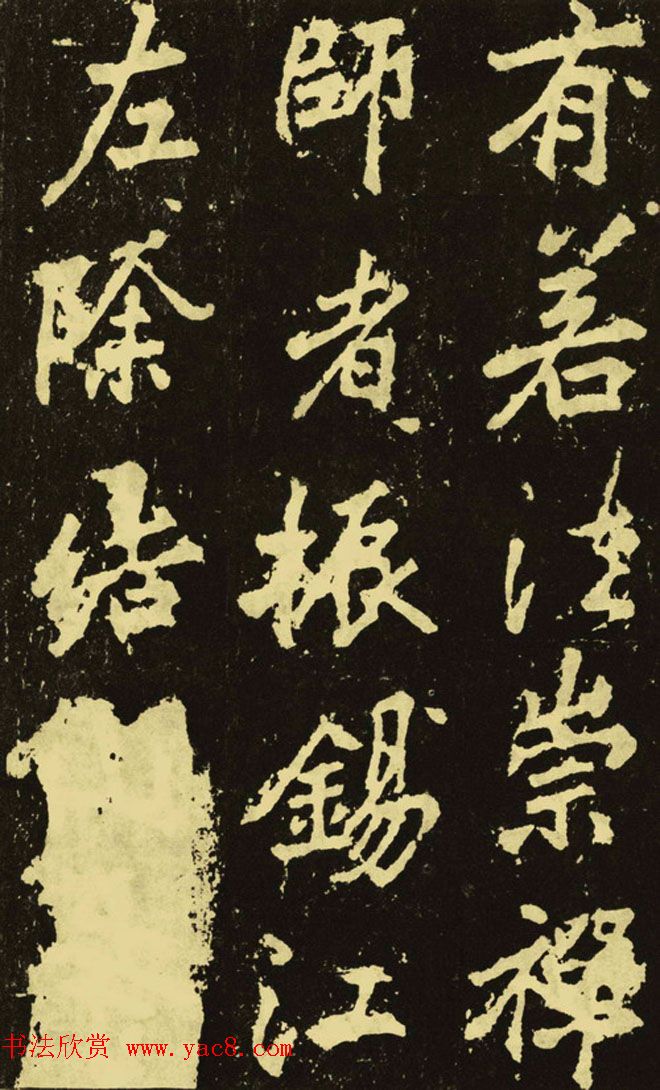 有若法崇禪
師者振錫江
左除結
书法欣赏 www.yac8.com